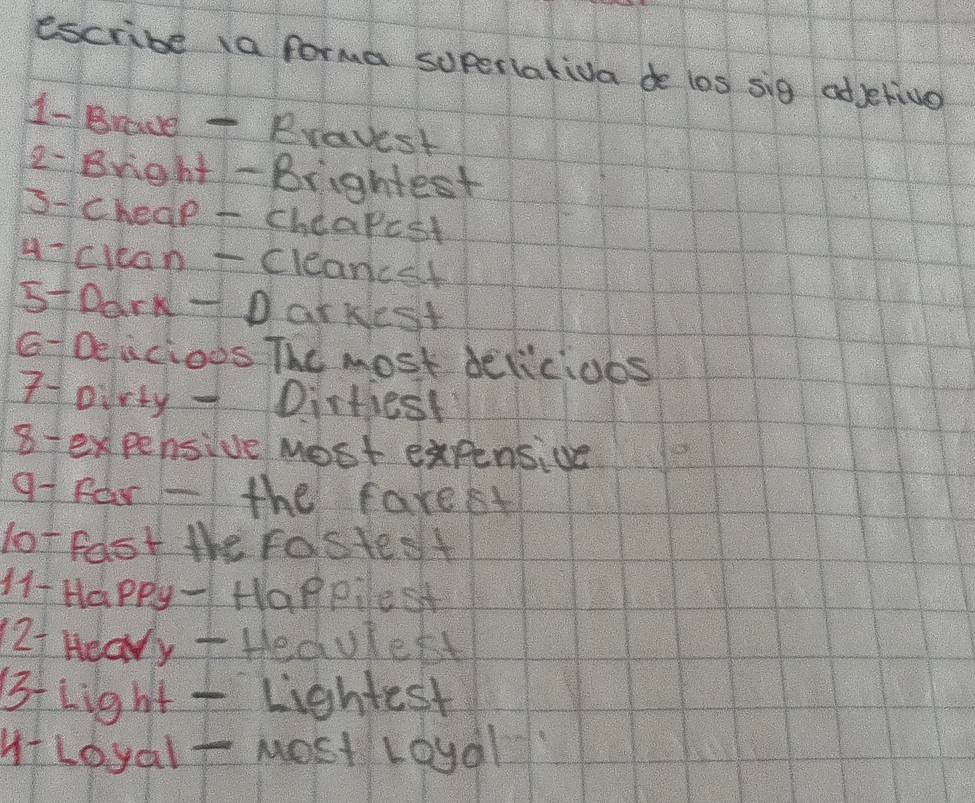 escribe la forma superlativa de los sig adjetivo
1- Brave - Bravest
2- Bright - Brightest
3- cheap - cheapest
4- clean - cleanest
5- Dark - Darkest
6- Delicioos The most delicioos
7- Dirty - Dirtiest
8- expensive most expensive
9- Far - the farest
10- fast the Fastest
11- Happy - Happiest
12- Heavy - Heaviest
13- Light - Lightest
14- Loyal - most Loyal